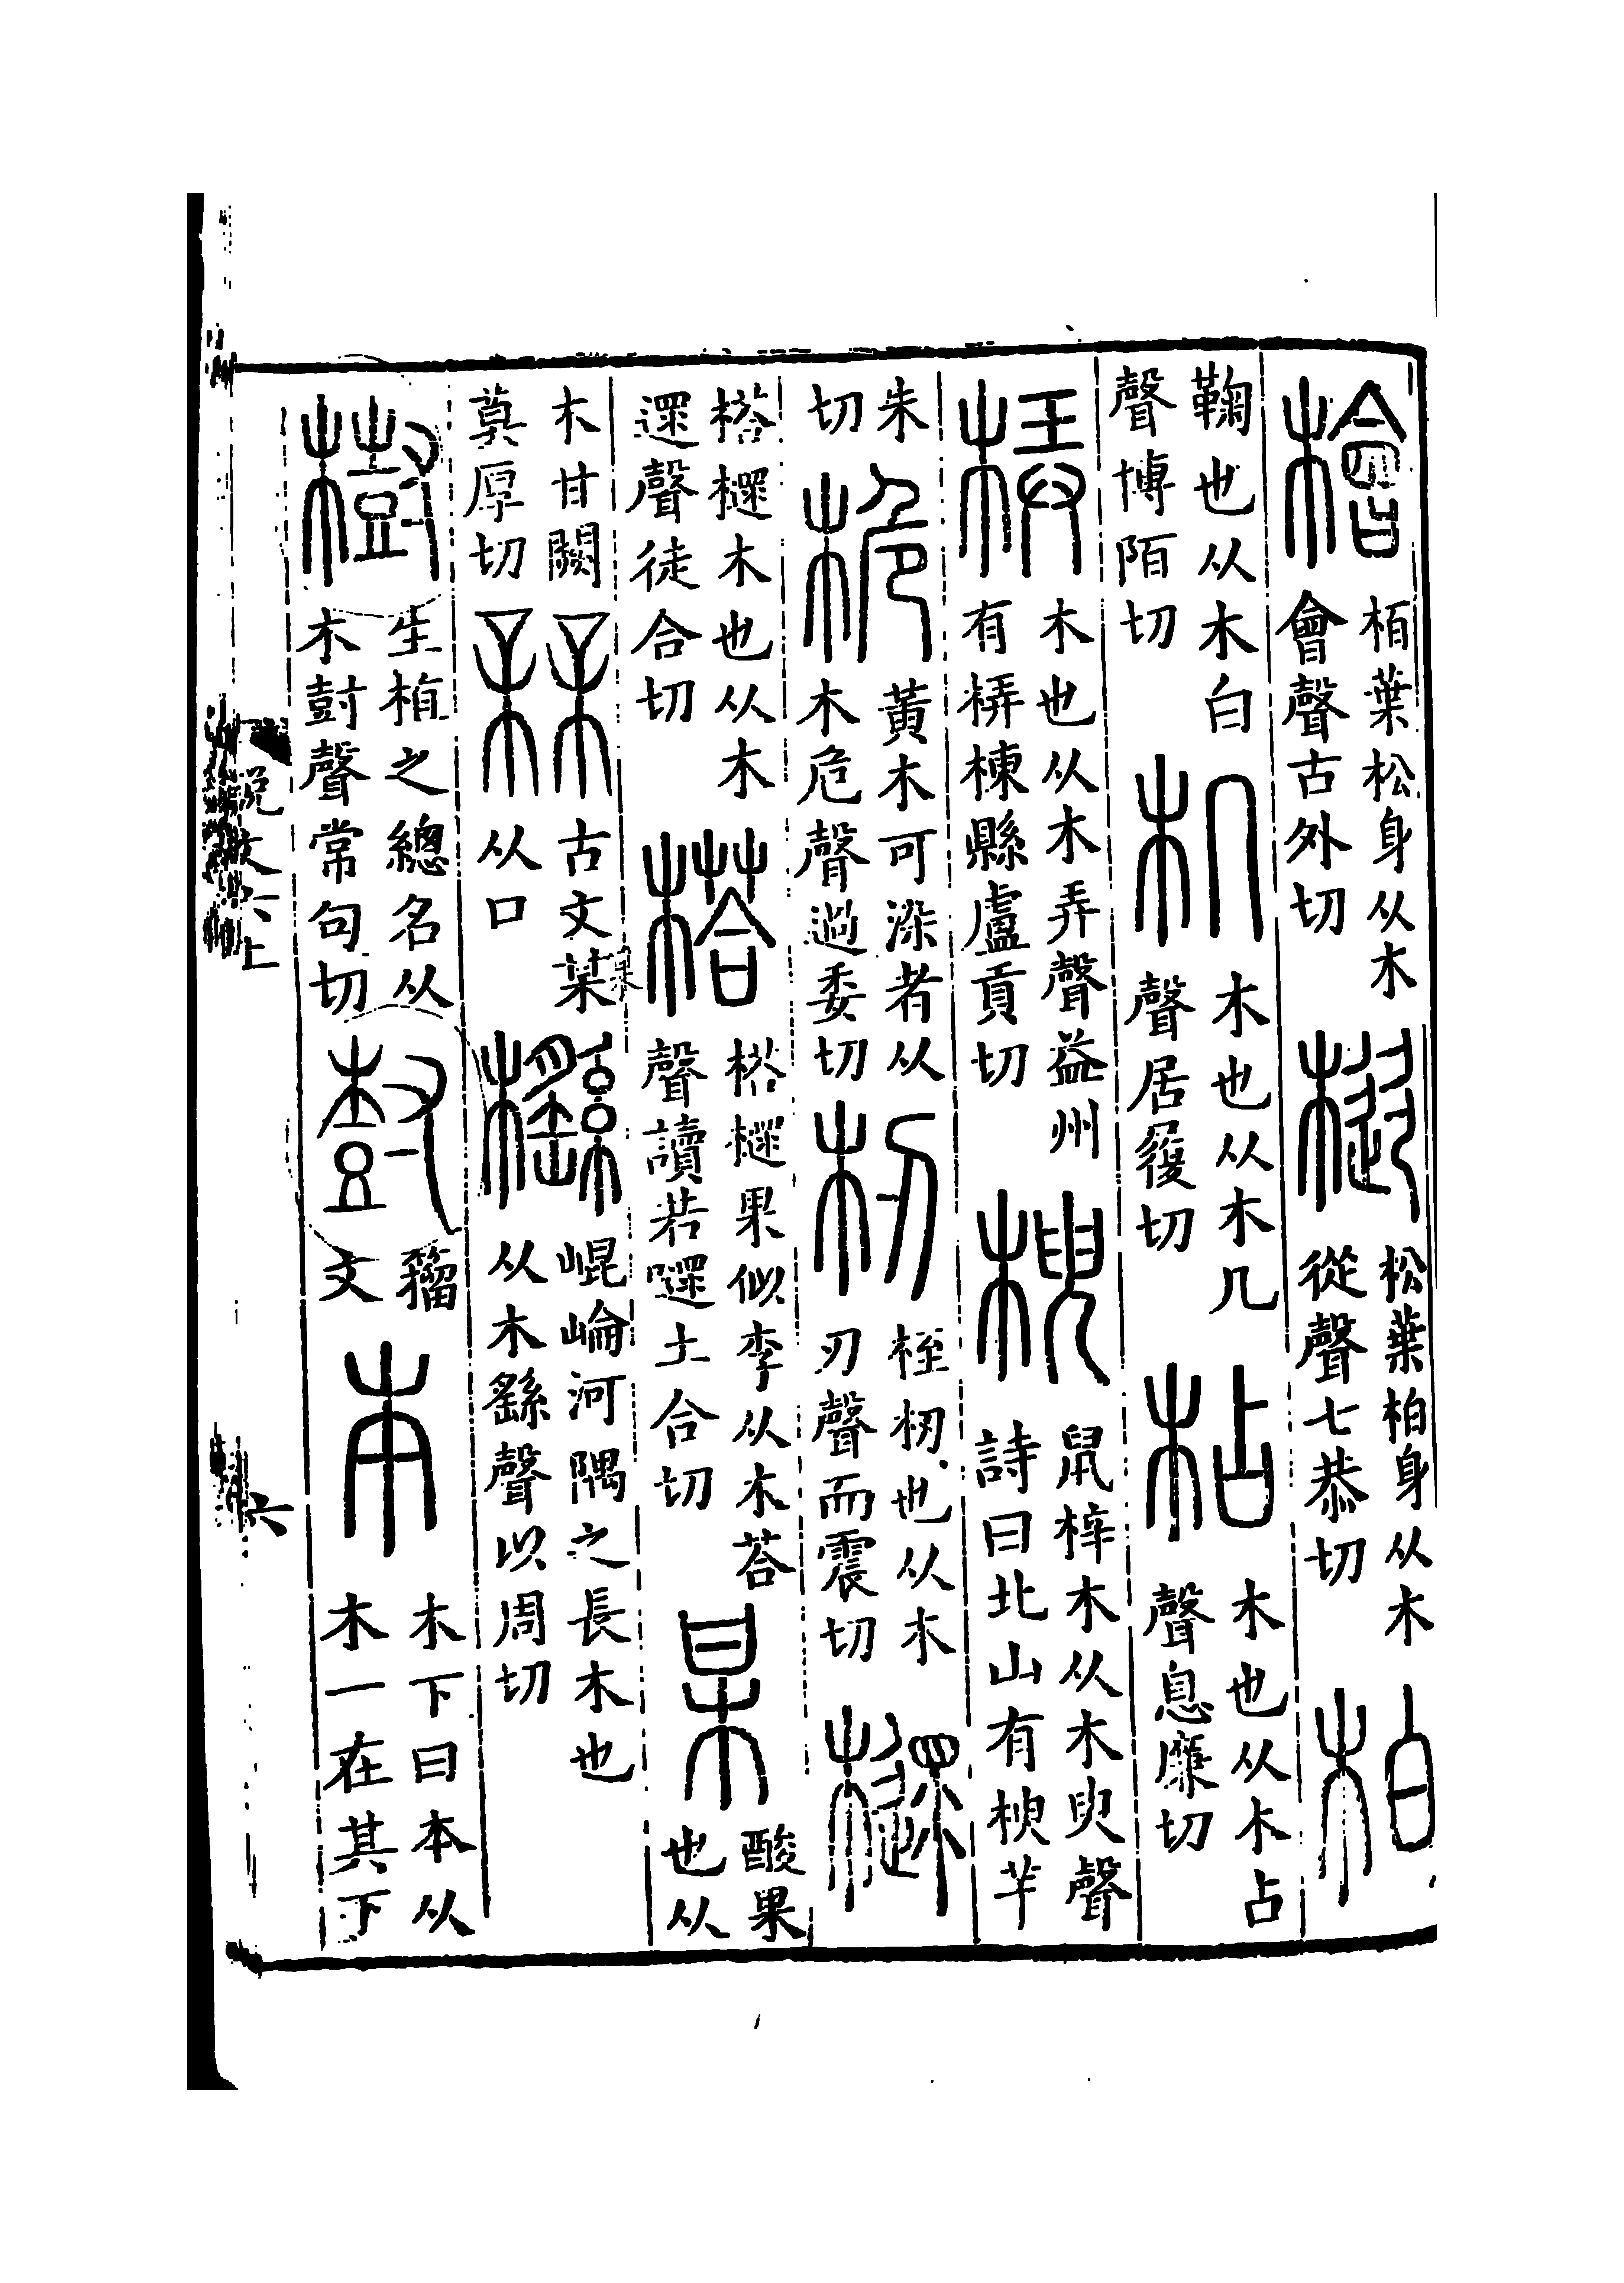 檜栢葉松身从木會聲古外切樅松葉柏身从木從聲七恭切柏
鞠也从木白聲博陌切机木也从木几聲居履切枮木也从木占聲息廉切
梇木也从木弄聲益州有梇棟縣盧貢切楰鼠梓木从木臾聲詩曰北山有楰羊
朱切桅黃木可染者从木危聲過委切杒桎杒也从木刃聲而震切㯓
榙㯓木也从木遝聲徒合切榙榙㯓果似李从木荅聲讀若嚃土合切某酸果也从
木甘闕莫厚切槑古文某从口櫾崐崘河隅之長木也从木繇聲以周切
樹生植之總名从木尌聲常句切尌籒文本木下曰本从木一在其下
說文六上 六